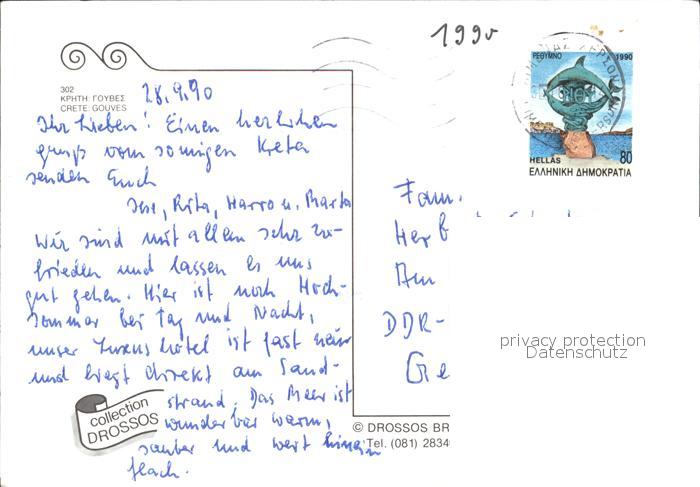 1990
302
ΚΡΗΤΗ: ΓΟΥΒΕΣ
CRETE: GOUVES
28.9.90
Ihr Lieben! Einen herzlichen
gruß vom sonnigen Kreta
senden Euch
Rita, Harro u. Marta
Wir sind mit allem sehr zu-
frieden und lassen es uns
gut gehen. Hier ist noch Hoch-
sommer bei Tag und Nacht,
unser Luxushotel ist fast neu
und liegt direkt am Sand-
strand. Das Meer ist
wunderbar warm,
sauber und weit hinein
flach.
collection
DROSSOS
© DROSSOS BR
Tel. (081) 2834
ΡΕΘΥΜΝΟ 1990
HELLAS 80
ΕΛΛΗΝΙΚΗ ΔΗΜΟΚΡΑΤΙΑ
Fam.
Herb
Am
DDR-
Ge
privacy protection
Datenschutz